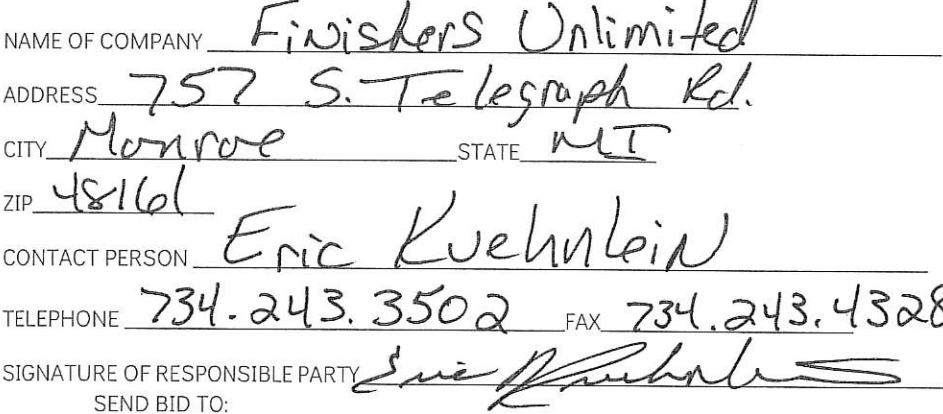 NAME OF COMPANY Finishers Unlimited
ADDRESS 757 S. Telegraph Rd.
CITY Monroe STATE MI
ZIP 48161
CONTACT PERSON Eric Kuehnlein
TELEPHONE 734.243.3502 FAX 734.243.4328
SIGNATURE OF RESPONSIBLE PARTY Eric Kuehnlein
SEND BID TO: